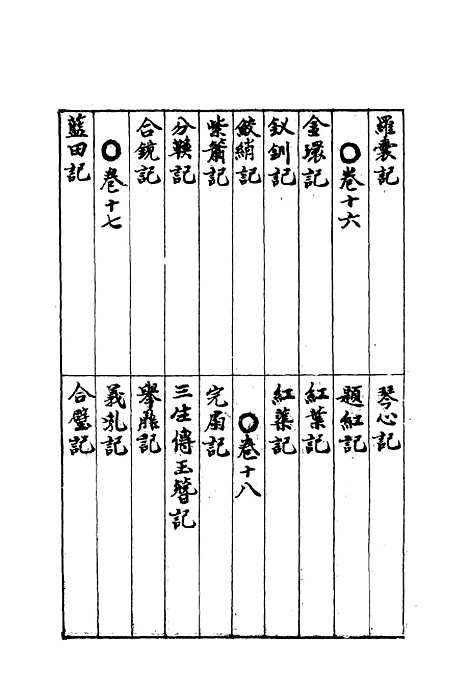 羅囊記
○卷十六
金環記
釵釧記
鮫綃記
紫簫記
分鞋記
合鏡記
○卷十七
藍田記
琴心記
題紅記
紅葉記
紅蕖記
○卷十八
完扇記
三生傳玉簪記
舉鼎記
義乳記
合璧記